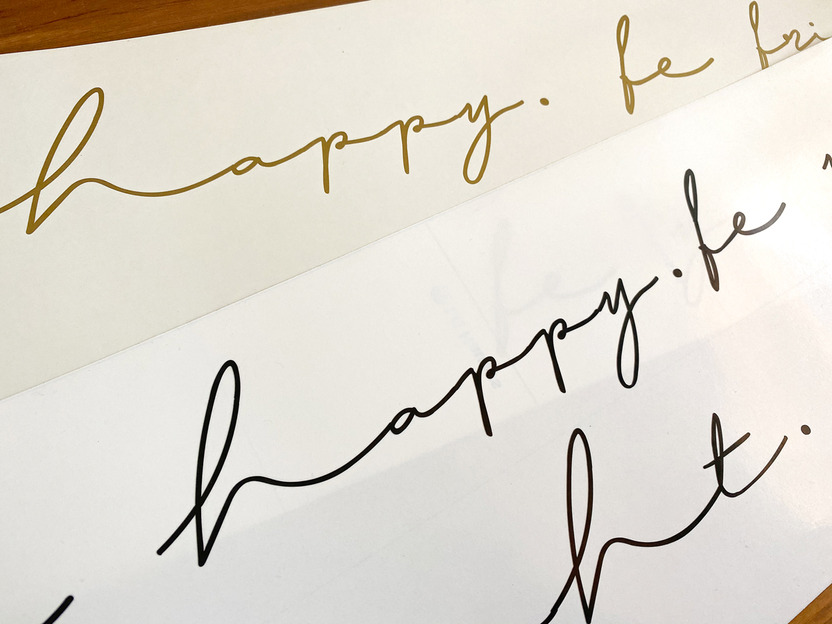 happy. be bri
happy. be
ht.